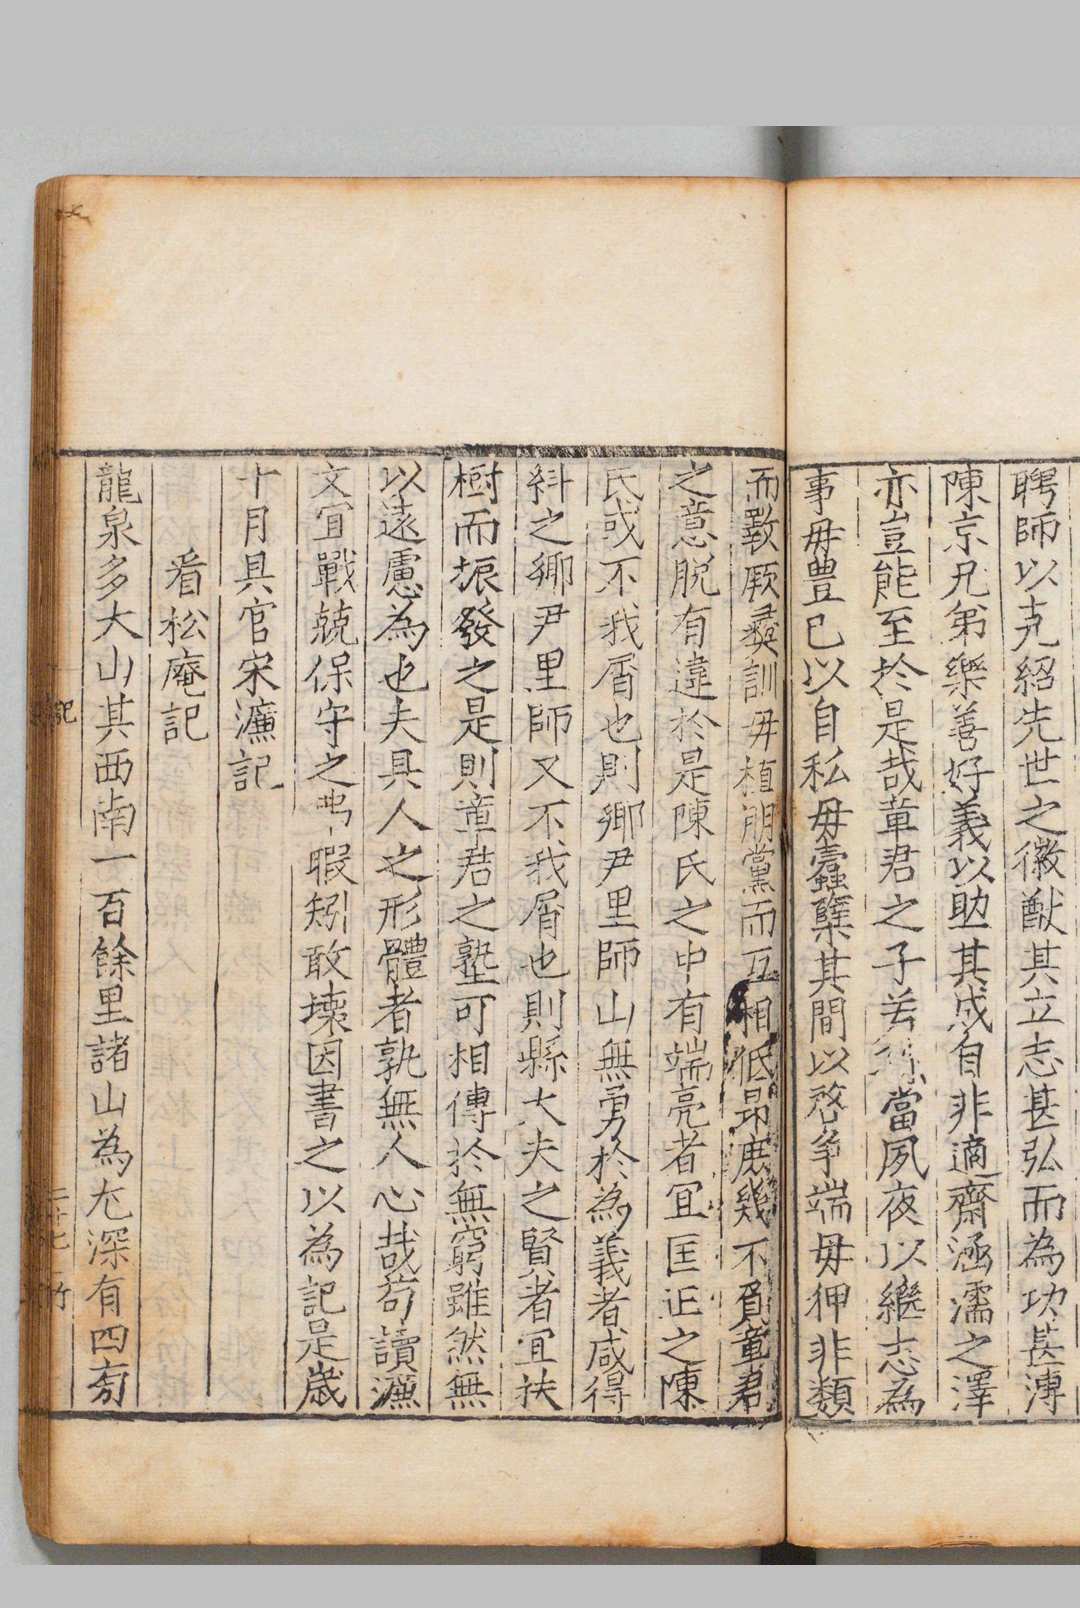 聘師以克紹先世之徽猷其立志甚弘而為功甚溥
陳京兄弟樂善好義以助其成自非適齋涵濡之澤
亦豈能至於是哉章君之子若孫當夙夜以繼志為
事毋豊已以自私毋蠹孽其間以啓爭端毋狎非類
而斁厥彝訓毋植朋黨而互相低昻庶幾不負章君
之意脫有違於是陳氏之中有端亮者宜匡正之陳
氏或不我屑也則鄉尹里師山無勇於為義者咸得
糾之鄉尹里師又不我屑也則縣大夫之賢者宜扶
樹而振發之是則章君之塾可相傳於無窮雖然無
以遠慮為也夫具人之形體者孰無人心哉苟讀濂
文宜戰兢保守之弗暇矧敢壞因書之以為記是歲
十月具官宋濂記
看松庵記
龍泉多大山其西南一百餘里諸山為尤深有四旁
記
二十七
竹